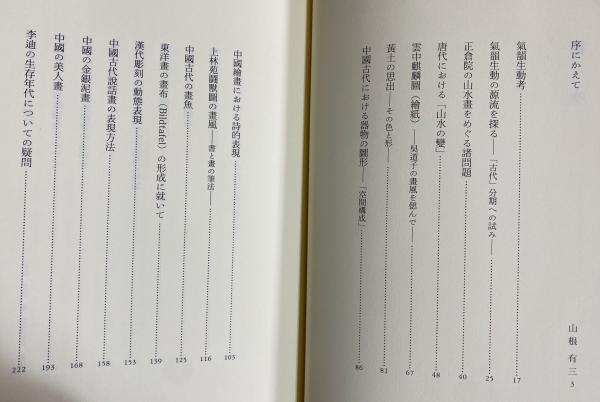 序にかえて 山根有三 3
氣韻生動考 17
氣韻生動の源流を探る――「古代」分期への試み―― 25
正倉院の山水畫をめぐる諸問題 40
唐代における「山水の變」 48
雲中麒麟圖（繪紙）――吳道子の畫風を偲んで―― 67
黃土の思出――その色と形―― 81
中國古代における器物の圖形――「空間構成」 86
中國繪畫における詩的表現 103
上林苑鬪獸圖の畫風――書と畫の筆法―― 116
中國古代の畫魚 125
東洋畫の畫布（Bildtafel）の形成に就いて 139
漢代彫刻の動態表現 153
中國古代説話畫の表現方法 158
中國の金銀泥畫 168
中國の美人畫 193
李迪の生存年代についての疑問 222